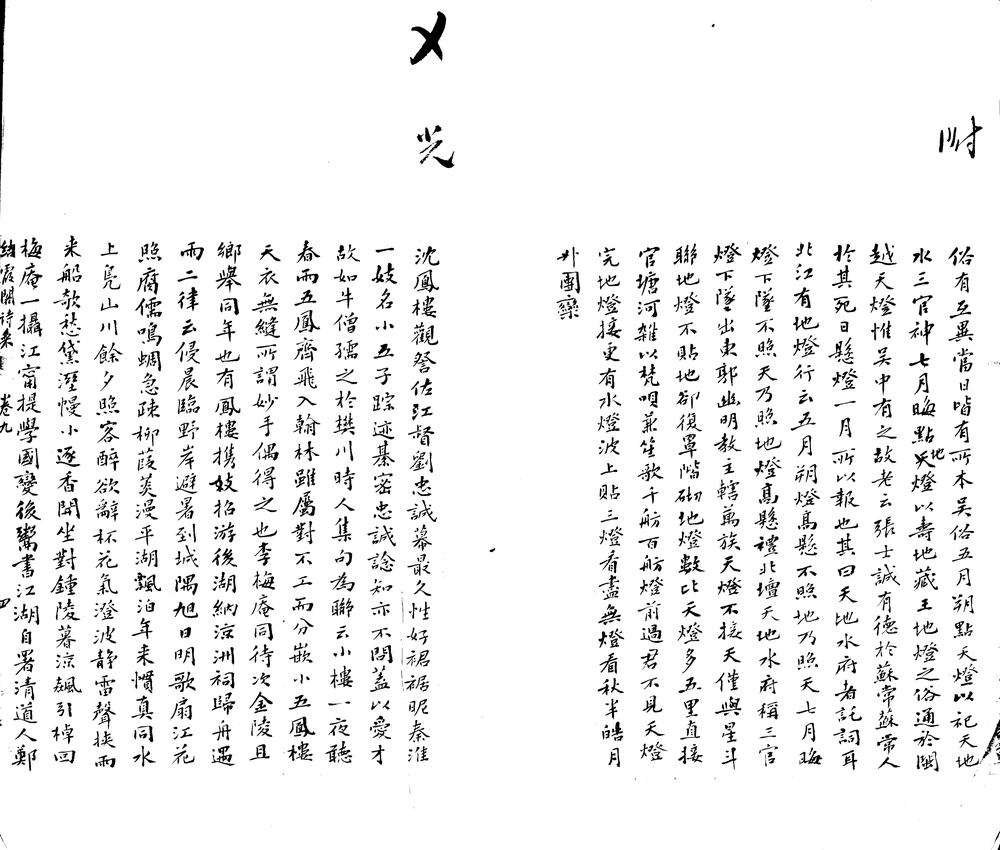 附
俗有互異當日皆有所本吳俗五月朔點天燈以祀天地
水三官神七月晦點地燈以壽地藏王地燈之俗通於閩
越天燈惟吳中有之故老云張士誠有德於蘇常蘇常人
於其死日懸燈一月所以報也其曰天地水府者託詞耳
北江有地燈行云五月朔燈高懸不照地乃照天七月晦
燈下墜不照天乃照地燈高懸禮北壇天地水府稱三官
燈下墜出東郭幽明教主轄萬族天燈不接天僅與星斗
聯地燈不貼地卻復罩階砌地燈數比天燈多五里直接
官塘河雜以梵唄兼笙歌千舫百舫燈前過君不見天燈
完地燈接更有水燈波上貼三燈看盡無燈看秋半皓月
外團欒
乂
光
沈鳳樓觀詧佐江督劉忠誠幕最久性好裙裾昵秦淮
一妓名小五子踪迹綦密忠誠諗知亦不問蓋以愛才
故如牛僧孺之於樊川時人集句為聯云小樓一夜聽
春雨五鳳齊飛入翰林雖屬對不工而分嵌小五鳳樓
天衣無縫所謂妙手偶得之也李梅庵同待次金陵且
鄉舉同年也有鳳樓携妓招游後湖納涼洲祠歸舟遇
雨二律云侵晨臨野岸避暑到城隅旭日明歌扇江花
照腐儒鳴蜩急疎柳菼漫平湖飄泊年来慣真同水
上鳧山川餘夕照客醉欲辭杯花氣澄波静雷聲挟雨
来船欹愁黛溼慢小逐香開坐對鍾陵暮涼飆引棹回
梅庵一攝江甯提學國變後鬻書江湖自署清道人鄭
詩 卷九
四